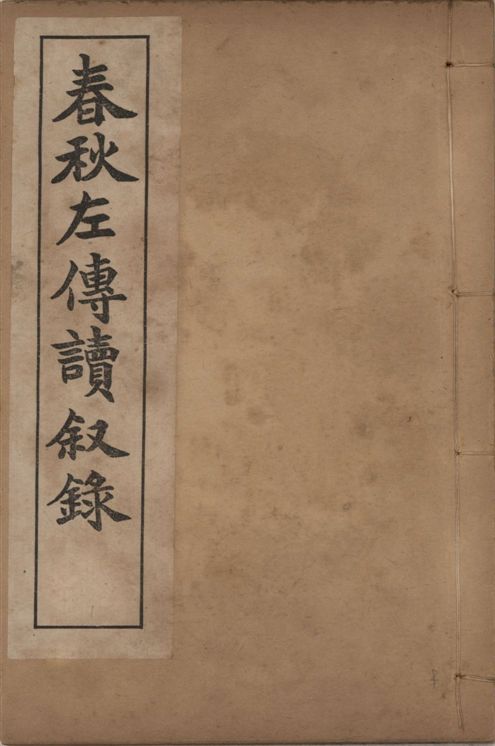 春秋左傳讀叙錄